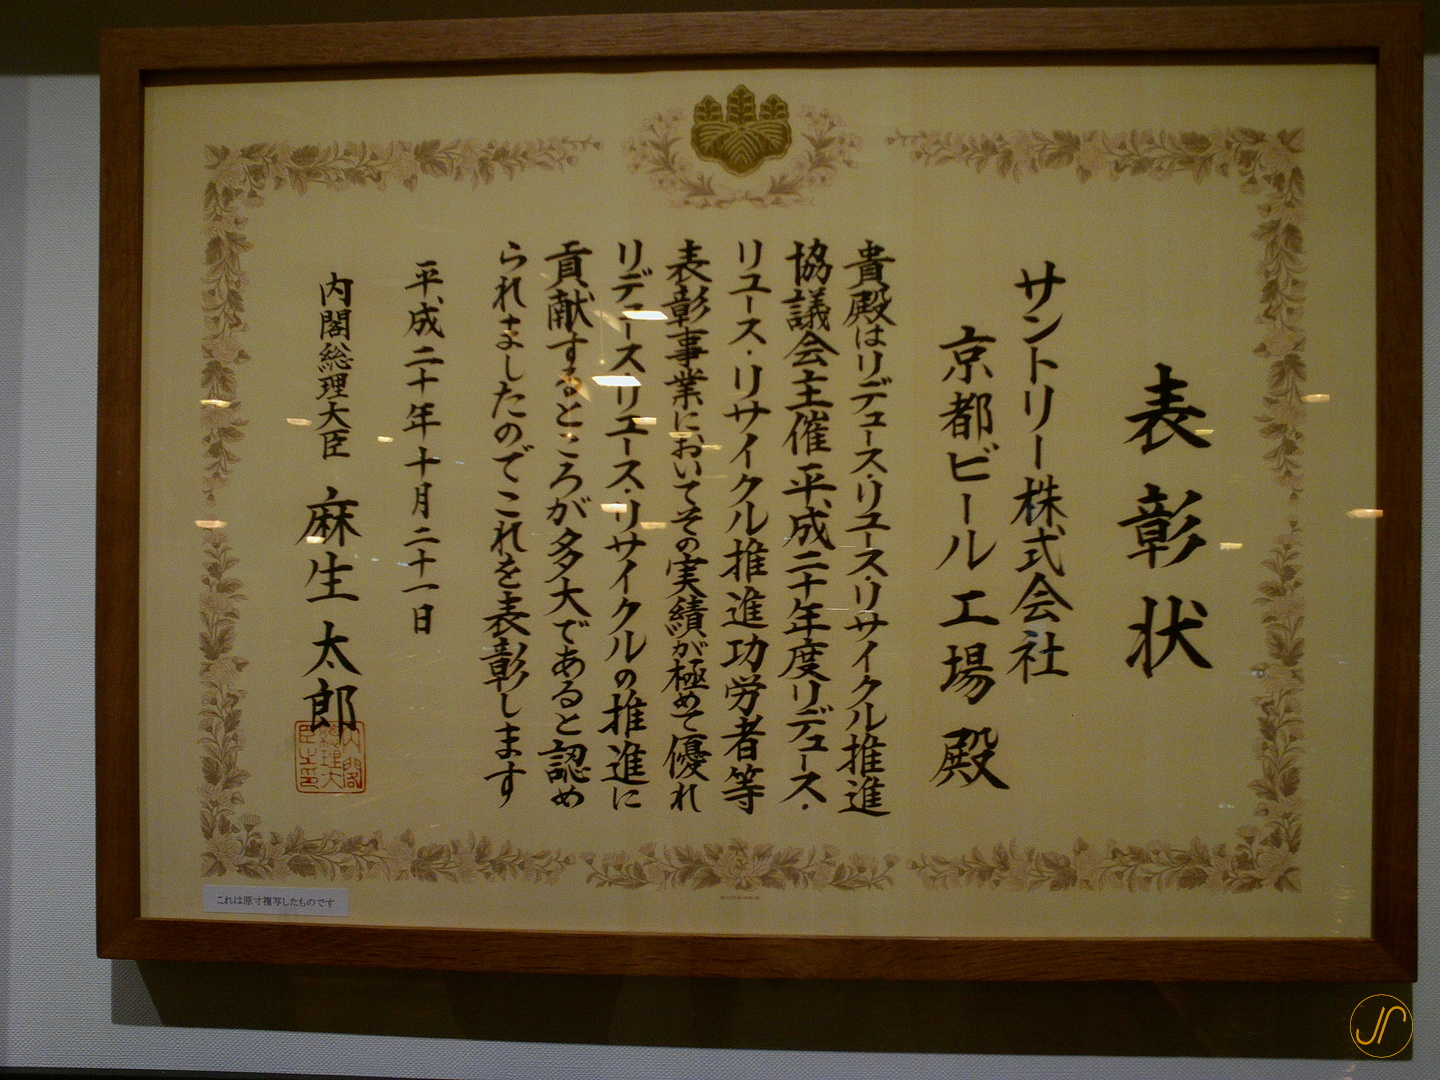 表彰状
サントリー株式会社
京都ビール工場 殿
貴殿はリデュース・リユース・リサイクル推進
協議会主催平成二十年度リデュース・
リユース・リサイクル推進功労者等
表彰事業においてその実績が極めて優れ
リデュース・リユース・リサイクルの推進に
貢献するところが多大であると認め
られましたのでこれを表彰します
平成二十年十月二十一日
内閣総理大臣 麻生太郎
内閣総理大臣之印
これは原寸複写したものです